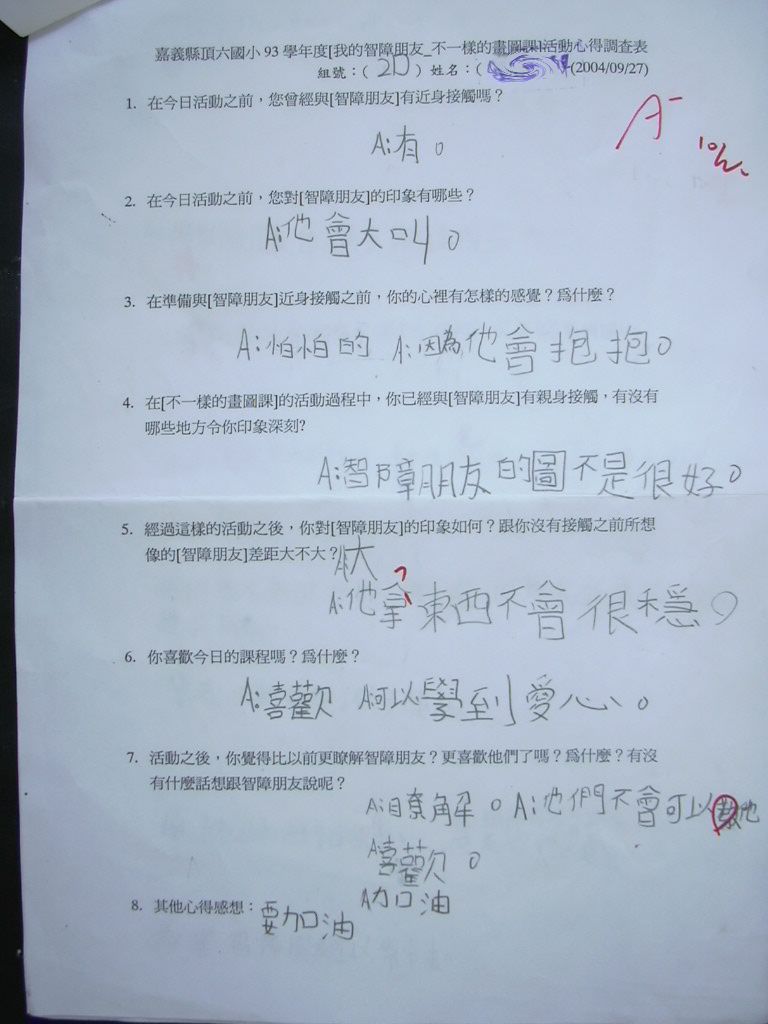 嘉義縣頂六國小93學年度[我的智障朋友_不一樣的畫圖課]活動心得調查表
組號：( 20 ) 姓名：( (2004/09/27)
A-
10/2
1. 在今日活動之前，您曾經與[智障朋友]有近身接觸嗎？
A:有。
2. 在今日活動之前，您對[智障朋友]的印象有哪些？
A:他會大叫。
3. 在準備與[智障朋友]近身接觸之前，你的心裡有怎樣的感覺？爲什麼？
A:怕怕的 A:因為他會抱抱。
4. 在[不一樣的畫圖課]的活動過程中，你已經與[智障朋友]有親身接觸，有沒有
哪些地方令你印象深刻?
A:智障朋友的圖不是很好。
5. 經過這樣的活動之後，你對[智障朋友]的印象如何？跟你沒有接觸之前所想
像的[智障朋友]差距大不大？
A:大
A:他拿東西不會很穩。
6. 你喜歡今日的課程嗎？爲什麼？
A:喜歡 A:可以學到愛心。
7. 活動之後，你覺得比以前更瞭解智障朋友？更喜歡他們了嗎？爲什麼？有沒
有什麼話想跟智障朋友說呢？
A:瞭解。A:他們不會可以教他
A:喜歡。
A加油
8. 其他心得感想：要加油